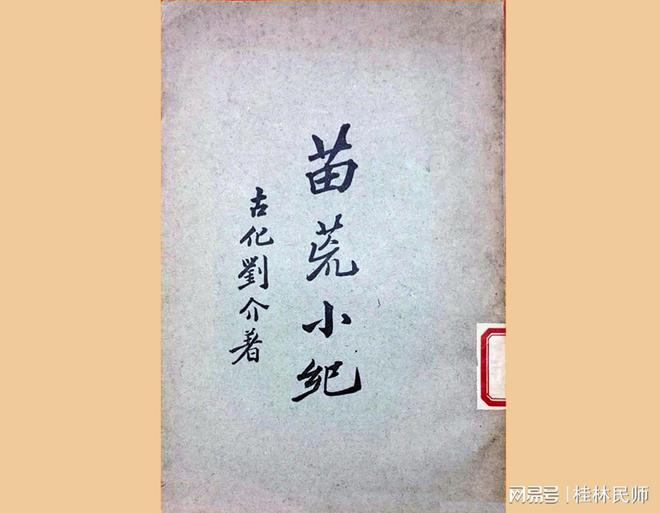 苗荒小纪
古化劉介著
网易号 | 桂林民师